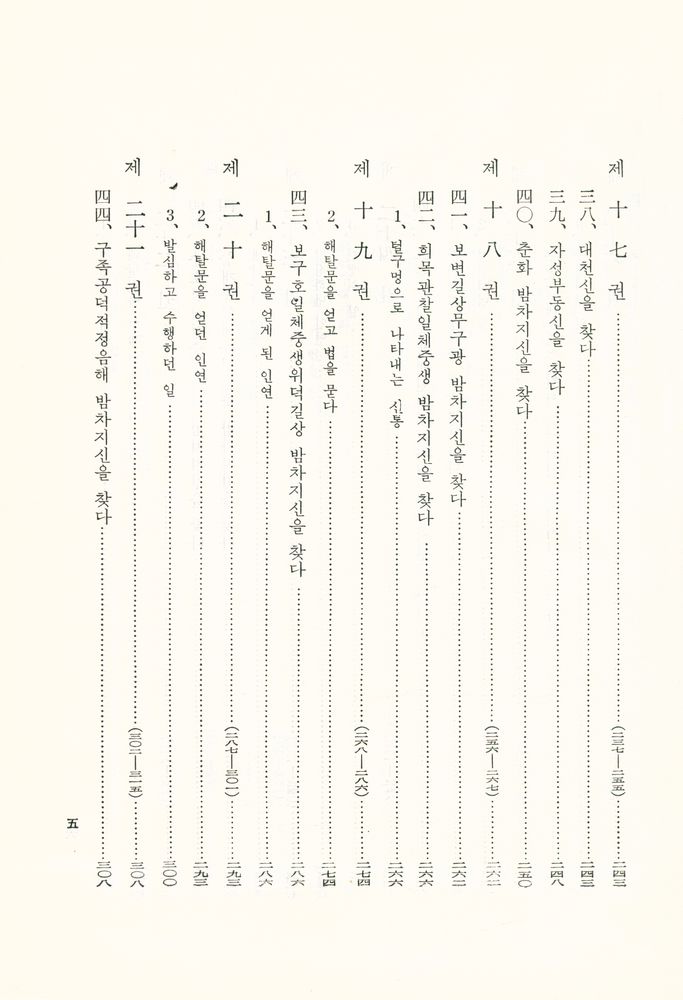 제 十 七 권 ………… (二三七—二五五) ………… 二四三
三八、대천신을 찾다 ………… 二四三
三九、자성부동신을 찾다 ………… 二四八
四〇、춘화 밤차지신을 찾다 ………… 二五〇
제 十 八 권 ………… (二五六—二六七) ………… 二六二
四一、보변길상무구광 밤차지신을 찾다 ………… 二六二
四二、희목관찰일체중생 밤차지신을 찾다 ………… 二六六
1、털구멍으로 나타내는 신통 ………… 二六六
제 十 九 권 ………… (二六八—二八六) ………… 二七四
2、해탈문을 얻고 법을 묻다 ………… 二七四
四三、보구호일체중생위덕길상 밤차지신을 찾다 ………… 二八六
1、해탈문을 얻게 된 인연 ………… 二八六
제 二 十 권 ………… (二八七—三〇一) ………… 二九三
2、해탈문을 얻던 인연 ………… 二九三
3、발심하고 수행하던 일 ………… 三〇〇
제 二十一 권 ………… (三〇二—三一五) ………… 三〇八
四四、구족공덕적정음해 밤차지신을 찾다 ………… 三〇八
五